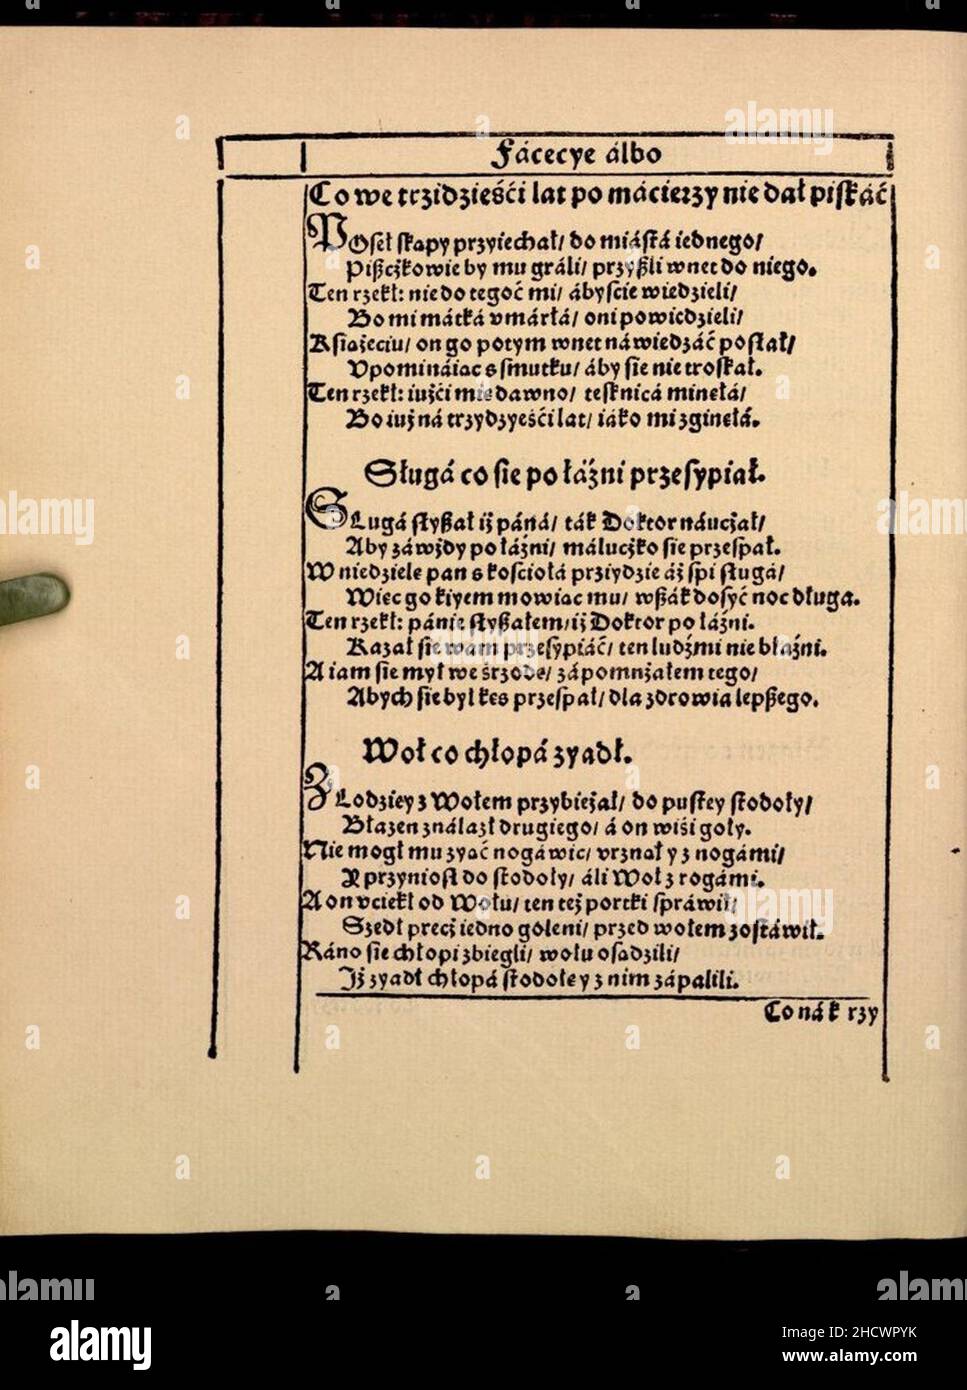 Fácecye álbo
Co we trzidzieśći lat po mácierzy nie dał piskáć
POseł skąpy przyiechał/ do miástá iednego/
Pißcżkowie by mu gráli/ przyßli wnet do niego.
Ten rzekł: nie do tegoć mi/ ábyście wiedzieli/
Bo mi mátká vmárłá/ oni powiedzieli/
Książęciu/ on go potym wnet náwiedzáć posłał/
Vpomináiąc s smutku/ áby sie nie troskał.
Ten rzekł: iużći mie dawno/ tesknicá minęłá/
Bo iuż ná trzydzyeśći lat/ iáko mi zginęłá.
Sługá co sie po łáźni przesypiał.
SŁugá słyßał iż páná/ ták Doktor náucżał/
Aby záwżdy po łáźni/ málucżko sie przespał.
W niedzielę pan s kościołá prziydzie áż spi sługá/
Więc go kiyem mowiąc mu/ wßák dosyć noc długa.
Ten rzekł: pánie słyßałem/ iż Doktor po łáźni.
Kazał sie wam przesypiáć/ ten ludźmi nie błaźni.
A iam sie mył we śrzodę/ zápomniałem tego/
Abych sie był kęs przespał/ dla zdrowia lepßego.
Woł co chłopá zyadł.
ZLodziey z Wołem przybieżał/ do pustey stodoły/
Błazen ználazł drugiego/ á on wiśi goły.
Nie mogł mu zyąć nogáwic/ vrznął y z nogámi/
Y przyniosł do stodoły/ áli Woł z rogámi.
A on vciekł od Wołu/ ten też portki spráwił/
Szedł precż iedno goleni/ przed wołem zostáwił.
Ráno sie chłopi zbiegli/ wołu osądzili/
Iż zyadł chłopá stodołę y z nim zápalili.
Co nák rzy
alamy
alamy
alamy
alamy
alamy
alamy
alamy
alamy
Image ID: 2HCWPYK
www.alamy.com